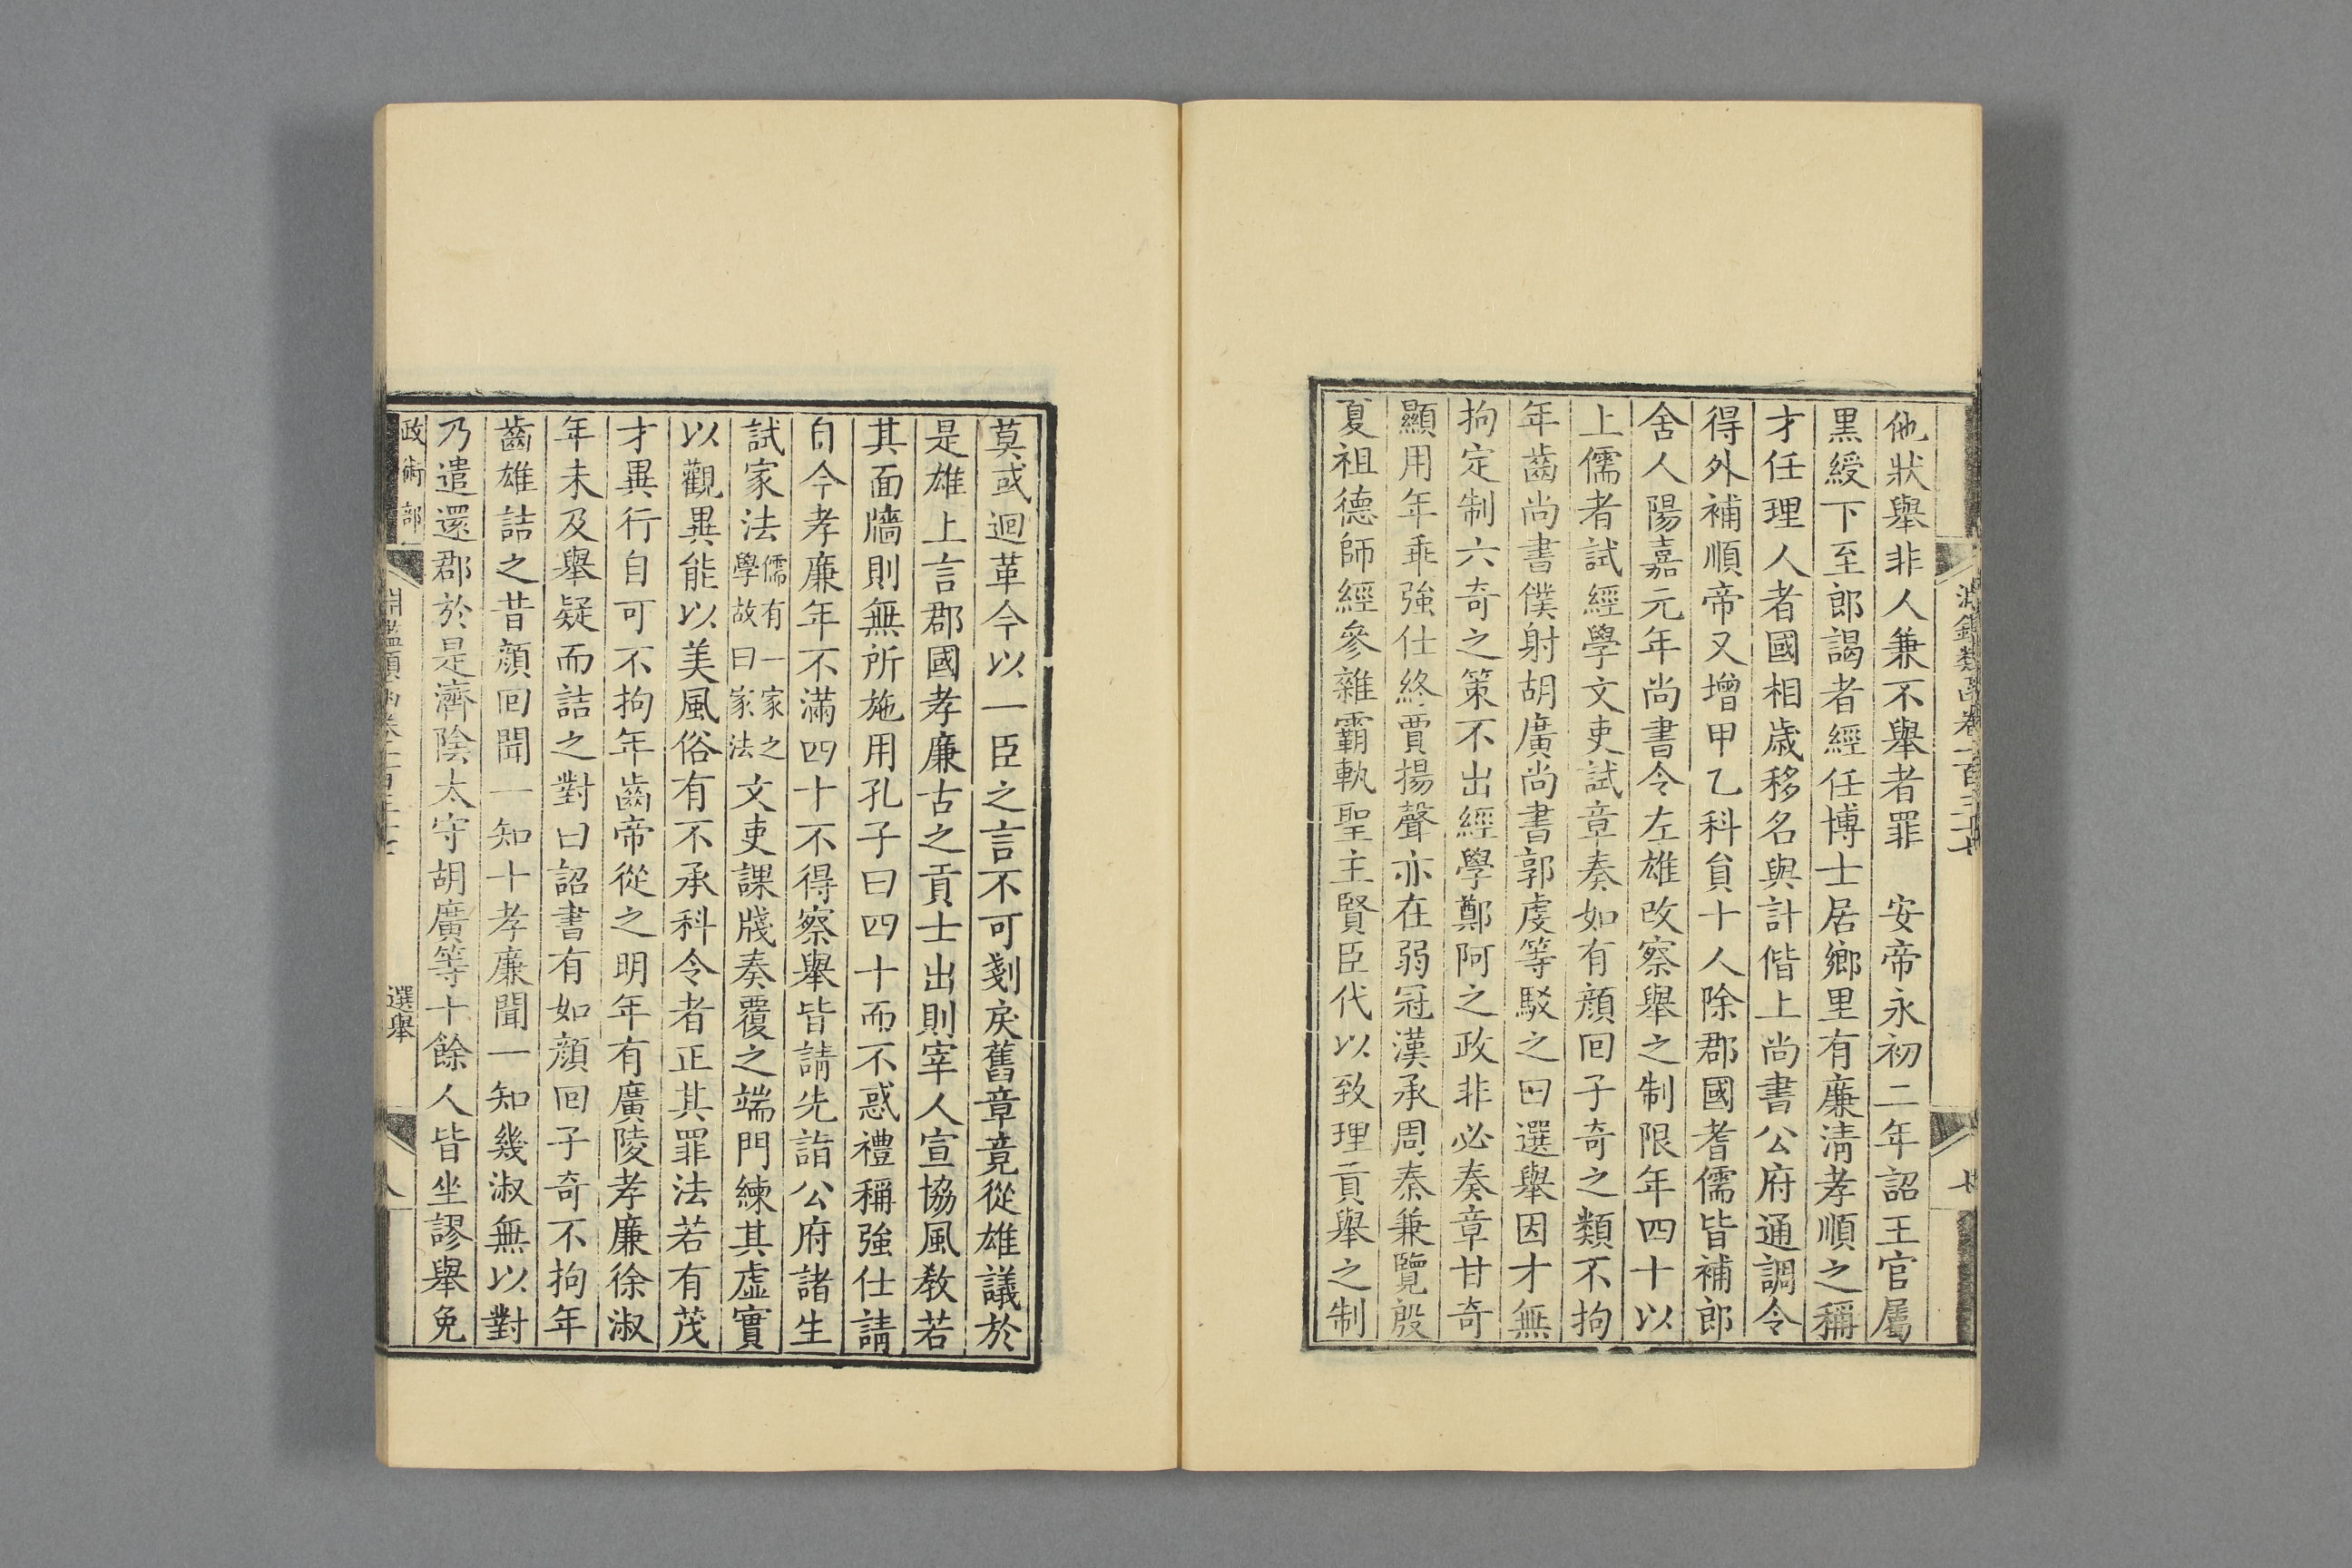 他狀舉非人兼不舉者罪　安帝永初二年詔王官屬
黒綬下至郎謁者經任博士居鄉里有廉淸孝順之稱
才任理人者國相歲移名與計偕上尚書公府通調令
得外補順帝又增甲乙科貟十人除郡國耆儒皆補郎
舍人陽嘉元年尚書令左雄改察舉之制限年四十以
上儒者試經學文吏試章奏如有顔回子奇之類不拘
年齒尚書僕射胡廣尚書郭虔等駁之曰選舉因才無
拘定制六奇之策不出經學鄭阿之政非必奏章甘奇
顯用年乖強仕終賈揚聲亦在弱冠漢承周秦兼覽殷
夏祖德師經參雜霸軌聖主賢臣代以致理貢舉之制
莫或迴革今以一臣之言不可剗戾舊章竟從雄議於
是雄上言郡國孝廉古之貢士出則宰人宣協風教若
其面牆則無所施用孔子曰四十而不惑禮稱強仕請
自今孝廉年不滿四十不得察舉皆請先詣公府諸生
試家法儒有一家之學故曰家法文吏課牋奏覆之端門練其虛實
以觀異能以美風俗有不承科令者正其罪法若有茂
才異行自可不拘年齒帝從之明年有廣陵孝廉徐淑
年未及舉疑而詰之對曰詔書有如顔回子奇不拘年
齒雄詰之昔顔回聞一知十孝廉聞一知幾淑無以對
乃遣還郡於是濟陰太守胡廣等十餘人皆坐謬舉免
政術部
選舉